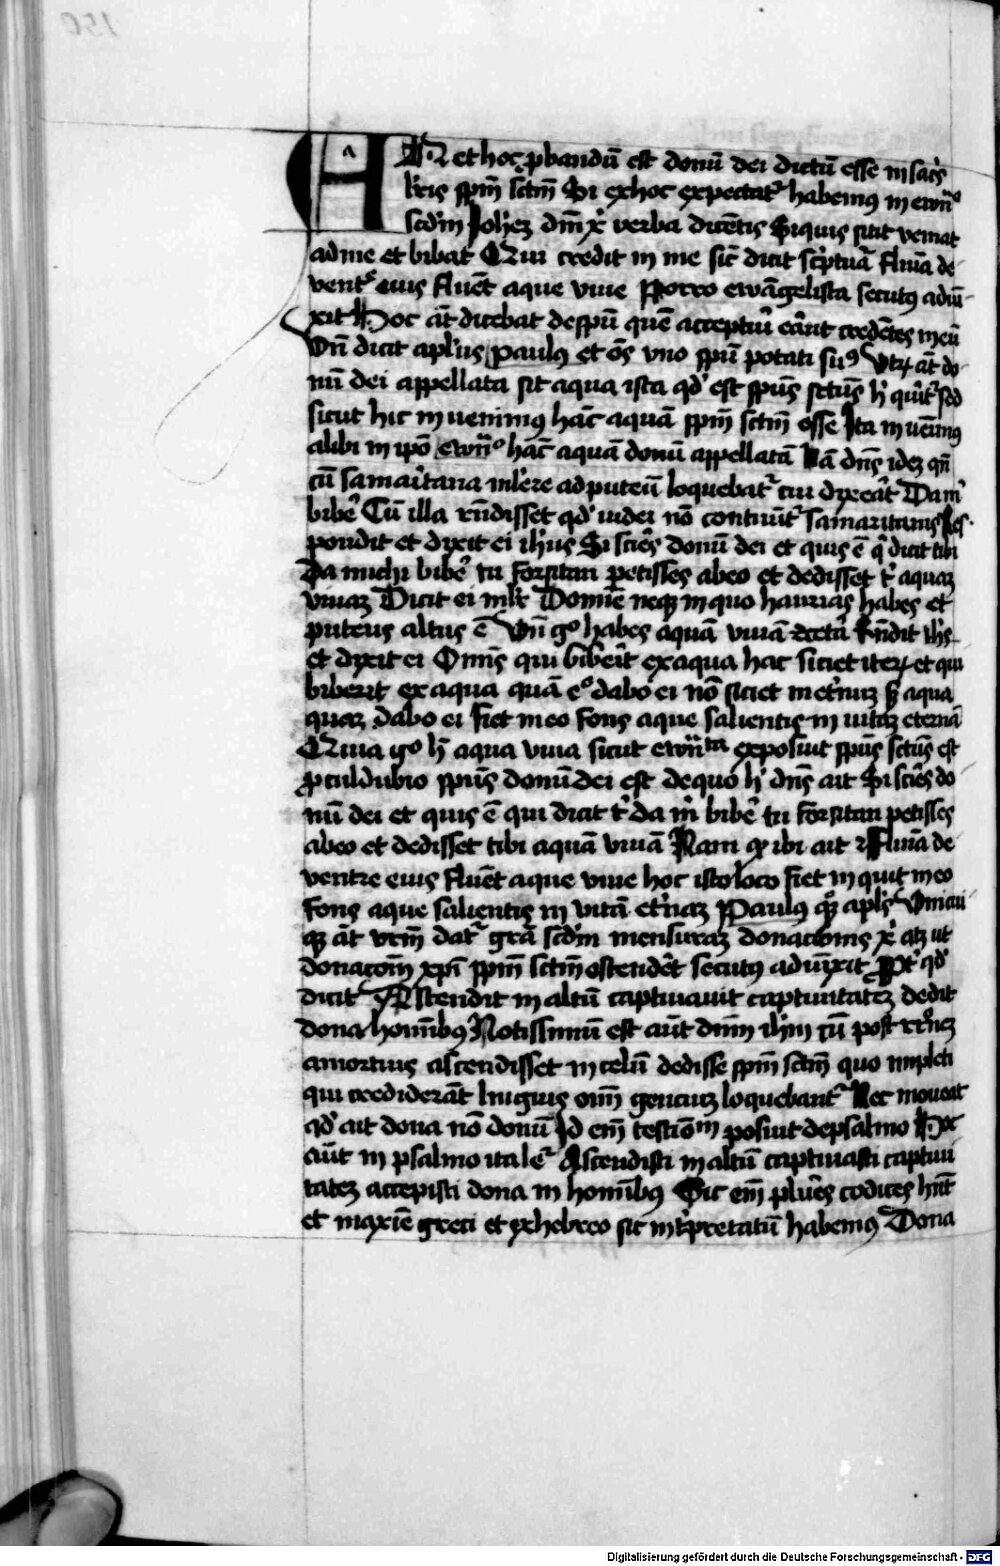 An et hoc ꝓbandū est donū dei dictū esse in sacͥs
libris spm̄ sctm̄ Si ex hoc expectat᷑ habemꝰ in ewͣnͦ
scdm̄ Joh̄eꝫ dn̄m xͥ verba dicētis Siquis sitit veniat
ad me et bibat Qui credit in me sic̄ dicit scͥptuͣ flūīa de
ventͤ eius fluēt aque viue Porro ewāgelista secutꝰ adiū
xit Hoc āt dicebat de spū quē acceptuͥ eānt credētes in eū
Vn̄ dicit apl̓us Paulꝰ et oēs vno spū potati suꝰ Vtꝝ āt do
nū dei appellata sit aqua ista qd̓ est spūs sctūs h̓ quīt᷑ sed
sicut hic inuenimꝰ hāc aquā spm̄ sctm̄ esse Ita inuēimꝰ
alibi in ipō ewͣnͦ hāc aquā donū appellatā Nā dn̄s ideꝫ qn̄
cū samaͥtana ml̓iere ad puteū loquebat᷑ cui dixeāt Da mͥ
bibe᷑ Cū illa rn̄disset qd̓ iudei nō coutūt᷑ samaritanis Res
pondit et dixit ei ih̓us Si scīes donū dei et quis ē qͥ dicit tibi
Da michi bibe᷑ tu forsitan petisses ab eo et dedisset tͥ aquaꝫ
viuaꝫ Dicit ei ml̓r Domīe neqꝫ in quo haurias habes et
puteus altus ē Vn̄ gͦ habes aquā viuā et cetͣ Rn̄dit ih̓s
et dixit ei Omīs qui bibeīt ex aqua hac siciet iteꝝ et qui
biberit ex aqua quā eͦ dabo ei nō siciet in et̓nuꝫ sꝫ aqua
quaꝫ dabo ei fiet in eo fons aque salientis in vitaꝫ eternā
Quia gͦ h̓ aqua viua sicut ewͣnͥta exposuit spūs sctūs est
ꝓculdubio spūs donū dei est de quo h̓ dn̄s ait Si scīes do
nū dei et quis ē qui dicit tͥ da mͥ bibe᷑ tu forsitan petisses
ab eo et dedisset tibi aquā viuā Nam qꝫ ibi ait flūīa de
ventre eius fluēt aque viue hoc isto loco fiet inquit in eo
fons aque salientis in vitā et̓naꝫ Paulꝰ qꝫ apl̓s Vnicui
qꝫ āt vrm̄ dat᷑ grā scdm̄ mensuraꝫ donacōnis xͥ atqꝫ ut
donacōm̄ xpī spm̄ sctm̄ ostendēt secutꝰ adiūxit Ppt̓ qd̓
dicit Ascendit in altū captiuauit captiuitateꝫ dedit
dona homībꝰ Notissimū est aūt dn̄m ih̓m cū post r̄r̄neꝫ
a mortuis ascendisset in celū dedisse spm̄ sctm̄ quo impleti
qui crediderāt linguis oīm̄ genciuꝫ loquebant᷑ Nec moueat
qd̓ ait dona nō donū Id em̄ testīoᵐ posuit de psalmo Hoc
aūt in psalmo ita leͥ᷑ Ascendisti in altū captiuasti captiui
tateꝫ accepisti dona in homībꝰ Sic em̄ plūes codices hn̄t
et maxīe greci et ex hebreo sic int̓pretatū habemꝰ Dona
Digitalisierung gefördert durch die Deutsche Forschungsgemeinschaft - DFG